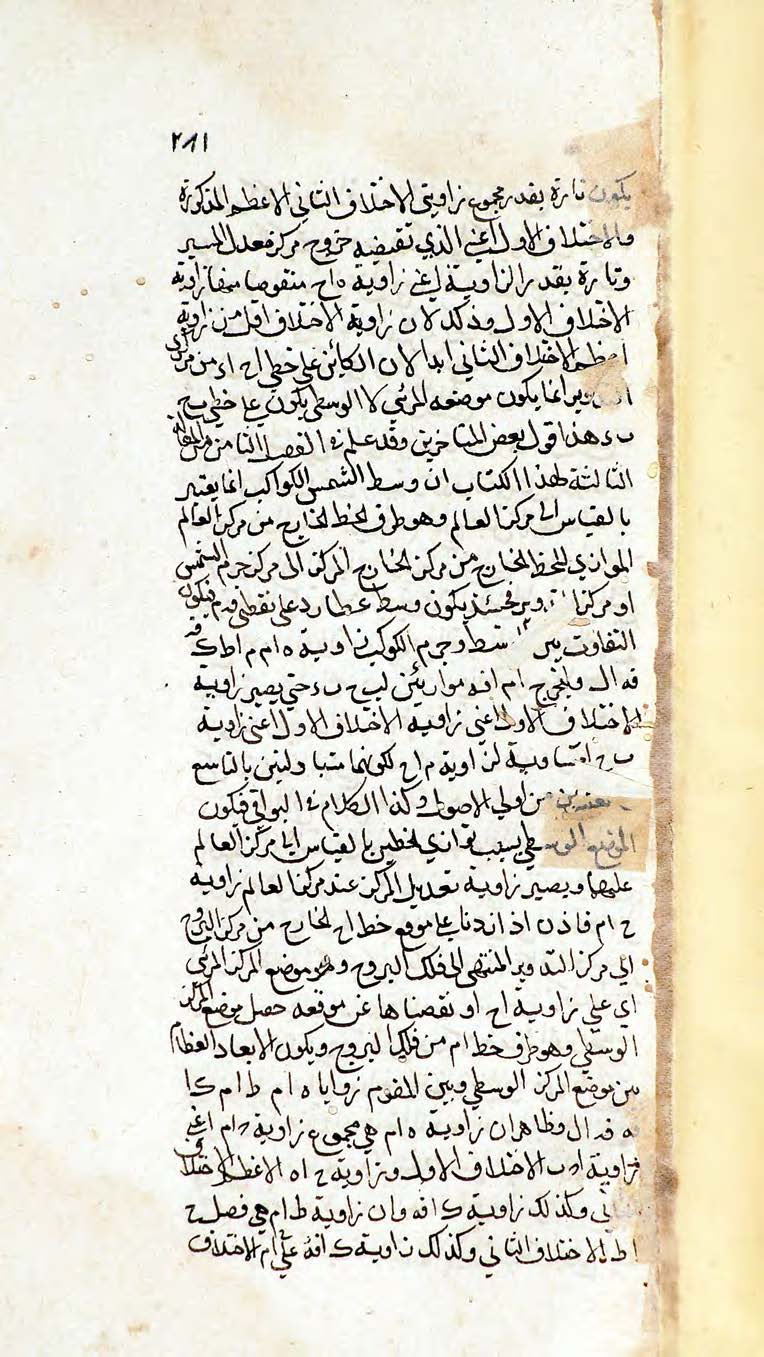 ٢٨١
يكون تارة بقدر مجموع زاويتي الاختلاف الثاني الاعظم المذكورة
والاختلاف الاول اعني الذي تقتضيه خروج مركز معدل المسير
وتارة بقدر الزاوية اعني زاوية ه ا ح منقوصا منها زاوية
الاختلاف الاول وذلك لان زاوية الاختلاف اقل من زاوية
اعظم الاختلاف الثاني ابدا لان الكائن علي خطي ا ح ا ء من مركزي
انما يكون موضعه المرئي لا الوسطي يكون علي خطي ب ح
ب ء هذا قول بعض المتاخرين وقد علم في الفصل الثامن من المقالة
الثالثة لهذا الكتاب ان وسط الشمس الكواكب انما يعتبر
بالقياس الي مركز العالم وهو طرف الخط الخارج من مركز العالم
الموازي للخط الخارج من مركز الخارج المركز الى مركز جرم الشمس
او مركز فحينئذ يكون وسط عطارد علي نقطتي فيكون
التفاوت بين وسط وجرم الكوكب زاوية ه ا م م ا ط ك
فه ال وليخرج ا م ا فه موازيين لب ح ب ء حتي يصير زاوية
الاختلاف الاول اعني زاوية الاختلاف الاول اعني زاوية
ب ح ا مساوية لزاوية م ا ح لكونهما متبادلتين بالتاسع
من اولي الاصول وكذا الكلام في البواقي فيكون
الموضع الوسطي بسبب توازي الخطين بالقياس الي مركز العالم
عليهما ويصير زاوية تعديل المركز عند مركز العالم زاوية
ح ا م فاذن اذا زدنا علي موقع خط ا ح الخارج من مركز البروج
الي مركز التدوير المنتهي الى فلك البروج وهو موضع المركز المرئي
اي علي زاوية ا ح او نقصناها عن موقعه حصل موضع المركز
الوسطي وهو طرف خط ا م من فلك البروج ويكون الابعاد العظام
بين موضع المركز الوسطي وبين المقوم زوايا ه ا م ط ا م ك ا
فه فه ال وظاهر ان زاوية ه ا م هي مجموع زاوية ح ا م اعني
زاوية ا ح ب الاختلاف الاول وزاوية ح ا ه الاعظم الاختلاف
الثاني وكذلك زاوية ك ا فه وان زاوية ط ا م هي فصل ح
ا ط الاختلاف الثاني وكذلك زاوية ك ا فه علي ح ا م الاختلاف